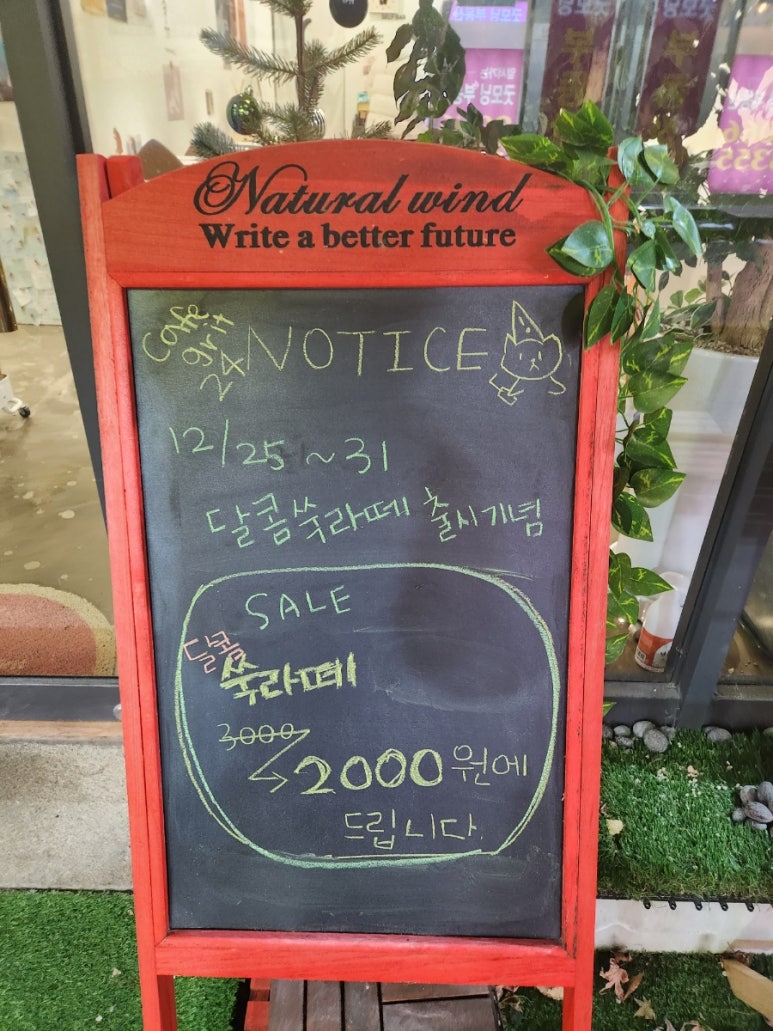 Natural wind
Write a better future
cafe
grit
24
NOTICE
12/25~31
달콤쑥라떼 출시기념
SALE
달콤
쑥라떼
3000
2000원에
드립니다.
굿모닝 부동산
굿모닝 부
355